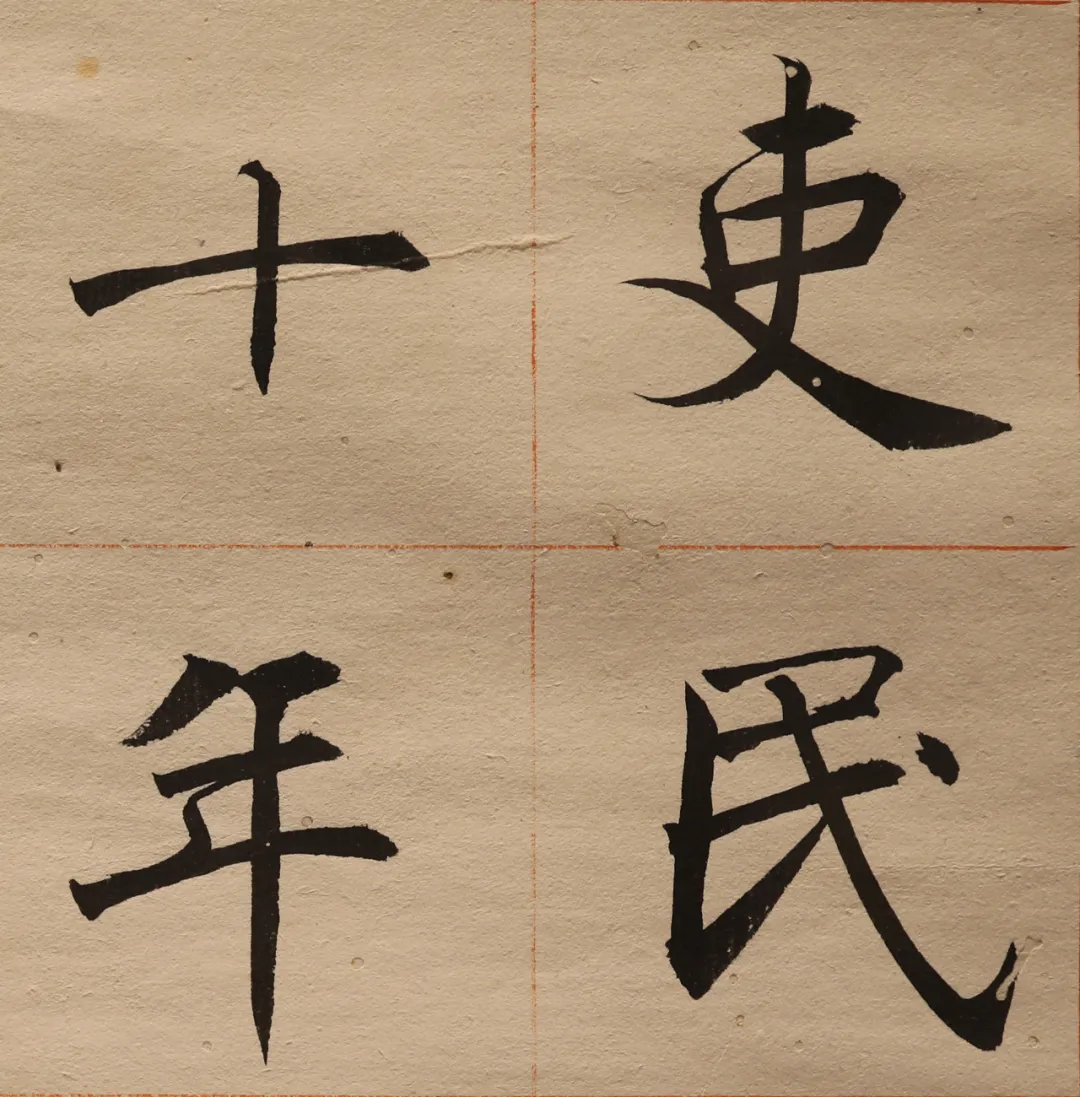 吏民
十年